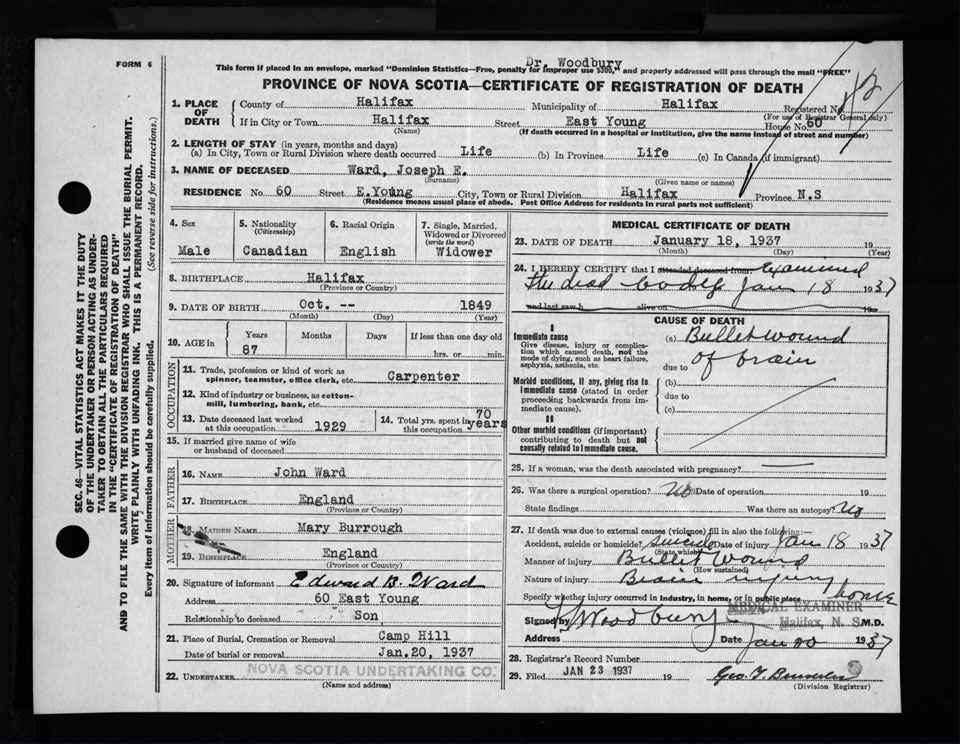 FORM 6
Dr. Woodbury
This form if placed in an envelope, marked "Dominion Statistics—Free, penalty for improper use $300," and properly addressed will pass through the mail "FREE"
PROVINCE OF NOVA SCOTIA—CERTIFICATE OF REGISTRATION OF DEATH
1. PLACE OF DEATH
County of Halifax Municipality of Halifax Registered No.
(For use of Registrar General only)
If in City or Town Halifax Street East Young House No. 60
(Name) (If death occurred in a hospital or institution, give the name instead of street and number)
2. LENGTH OF STAY (in years, months and days)
(a) In City, Town or Rural Division where death occurred Life (b) In Province Life (c) In Canada (if immigrant)
3. NAME OF DECEASED Ward, Joseph E.
(Surname) (Given name or names)
RESIDENCE No. 60 Street E.Young City, Town or Rural Division Halifax Province N.S
(Residence means usual place of abode. Post Office Address for residents in rural parts not sufficient)
4. Sex
Male
5. Nationality
(Citizenship)
Canadian
6. Racial Origin
English
7. Single, Married,
Widowed or Divorced
(write the word)
Widower
8. BIRTHPLACE Halifax
(Province or Country)
9. DATE OF BIRTH Oct. -- 1849
(Month) (Day) (Year)
10. AGE in Years Months Days If less than one day old
87 hrs. or min.
OCCUPATION
11. Trade, profession or kind of work as
spinner, teamster, office clerk, etc. Carpenter
12. Kind of industry or business, as cotton-
mill, lumbering, bank, etc.
13. Date deceased last worked
at this occupation 1929
14. Total yrs. spent in
this occupation 70 years
15. If married give name of wife
or husband of deceased
FATHER
16. NAME John Ward
17. BIRTHPLACE England
(Province or Country)
MOTHER
18. MAIDEN NAME Mary Burrough
19. BIRTHPLACE England
(Province or Country)
20. Signature of informant Edward B. Ward
Address 60 East Young
Relationship to deceased Son
21. Place of Burial, Cremation or Removal Camp Hill
Date of burial or removal Jan.20, 1937
22. UNDERTAKER NOVA SCOTIA UNDERTAKING CO.
(Name and address)
MEDICAL CERTIFICATE OF DEATH
23. DATE OF DEATH January 18, 1937 19
(Month) (Day) (Year)
24. I HEREBY CERTIFY that I attended deceased from Examined
the dead body Jan 18 1937
and last saw h alive on 19
CAUSE OF DEATH
I
Immediate cause
Give disease, injury or complica-
tion which caused death, not the
mode of dying, such as heart failure,
asphyxia, asthenia, etc.
(a) Bullet wound
due to of brain
Morbid conditions, if any, giving rise to
immediate cause (stated in order
proceeding backwards from im-
mediate cause).
(b)
due to
(c)
II
Other morbid conditions (if important)
contributing to death but not
causally related to immediate cause.
25. If a woman, was the death associated with pregnancy?
26. Was there a surgical operation? No Date of operation 19
State findings Was there an autopsy? No
27. If death was due to external causes (violence) fill in also the following:
Accident, suicide or homicide? suicide Date of injury Jan 18 1937
(State which)
Manner of injury Bullet Wound
(How sustained)
Nature of injury Brain injury
Specify whether injury occurred in Industry, in home, or in public place home
MEDICAL EXAMINER
Signed by Woodbury Halifax, N. S. M.D.
Address Date Jan 20 1937
28. Registrar's Record Number
29. Filed JAN 23 1937 19
(Division Registrar)
SEC. 46—VITAL STATISTICS ACT MAKES IT THE DUTY
OF THE UNDERTAKER OR PERSON ACTING AS UNDER-
TAKER TO OBTAIN ALL THE PARTICULARS REQUIRED
IN THE "CERTIFICATE OF REGISTRATION OF DEATH"
AND TO FILE THE SAME WITH THE DIVISION REGISTRAR WHO SHALL ISSUE THE BURIAL PERMIT.
WRITE PLAINLY WITH UNFADING INK. THIS IS A PERMANENT RECORD.
Every item of information should be carefully supplied. (See reverse side for instructions.)